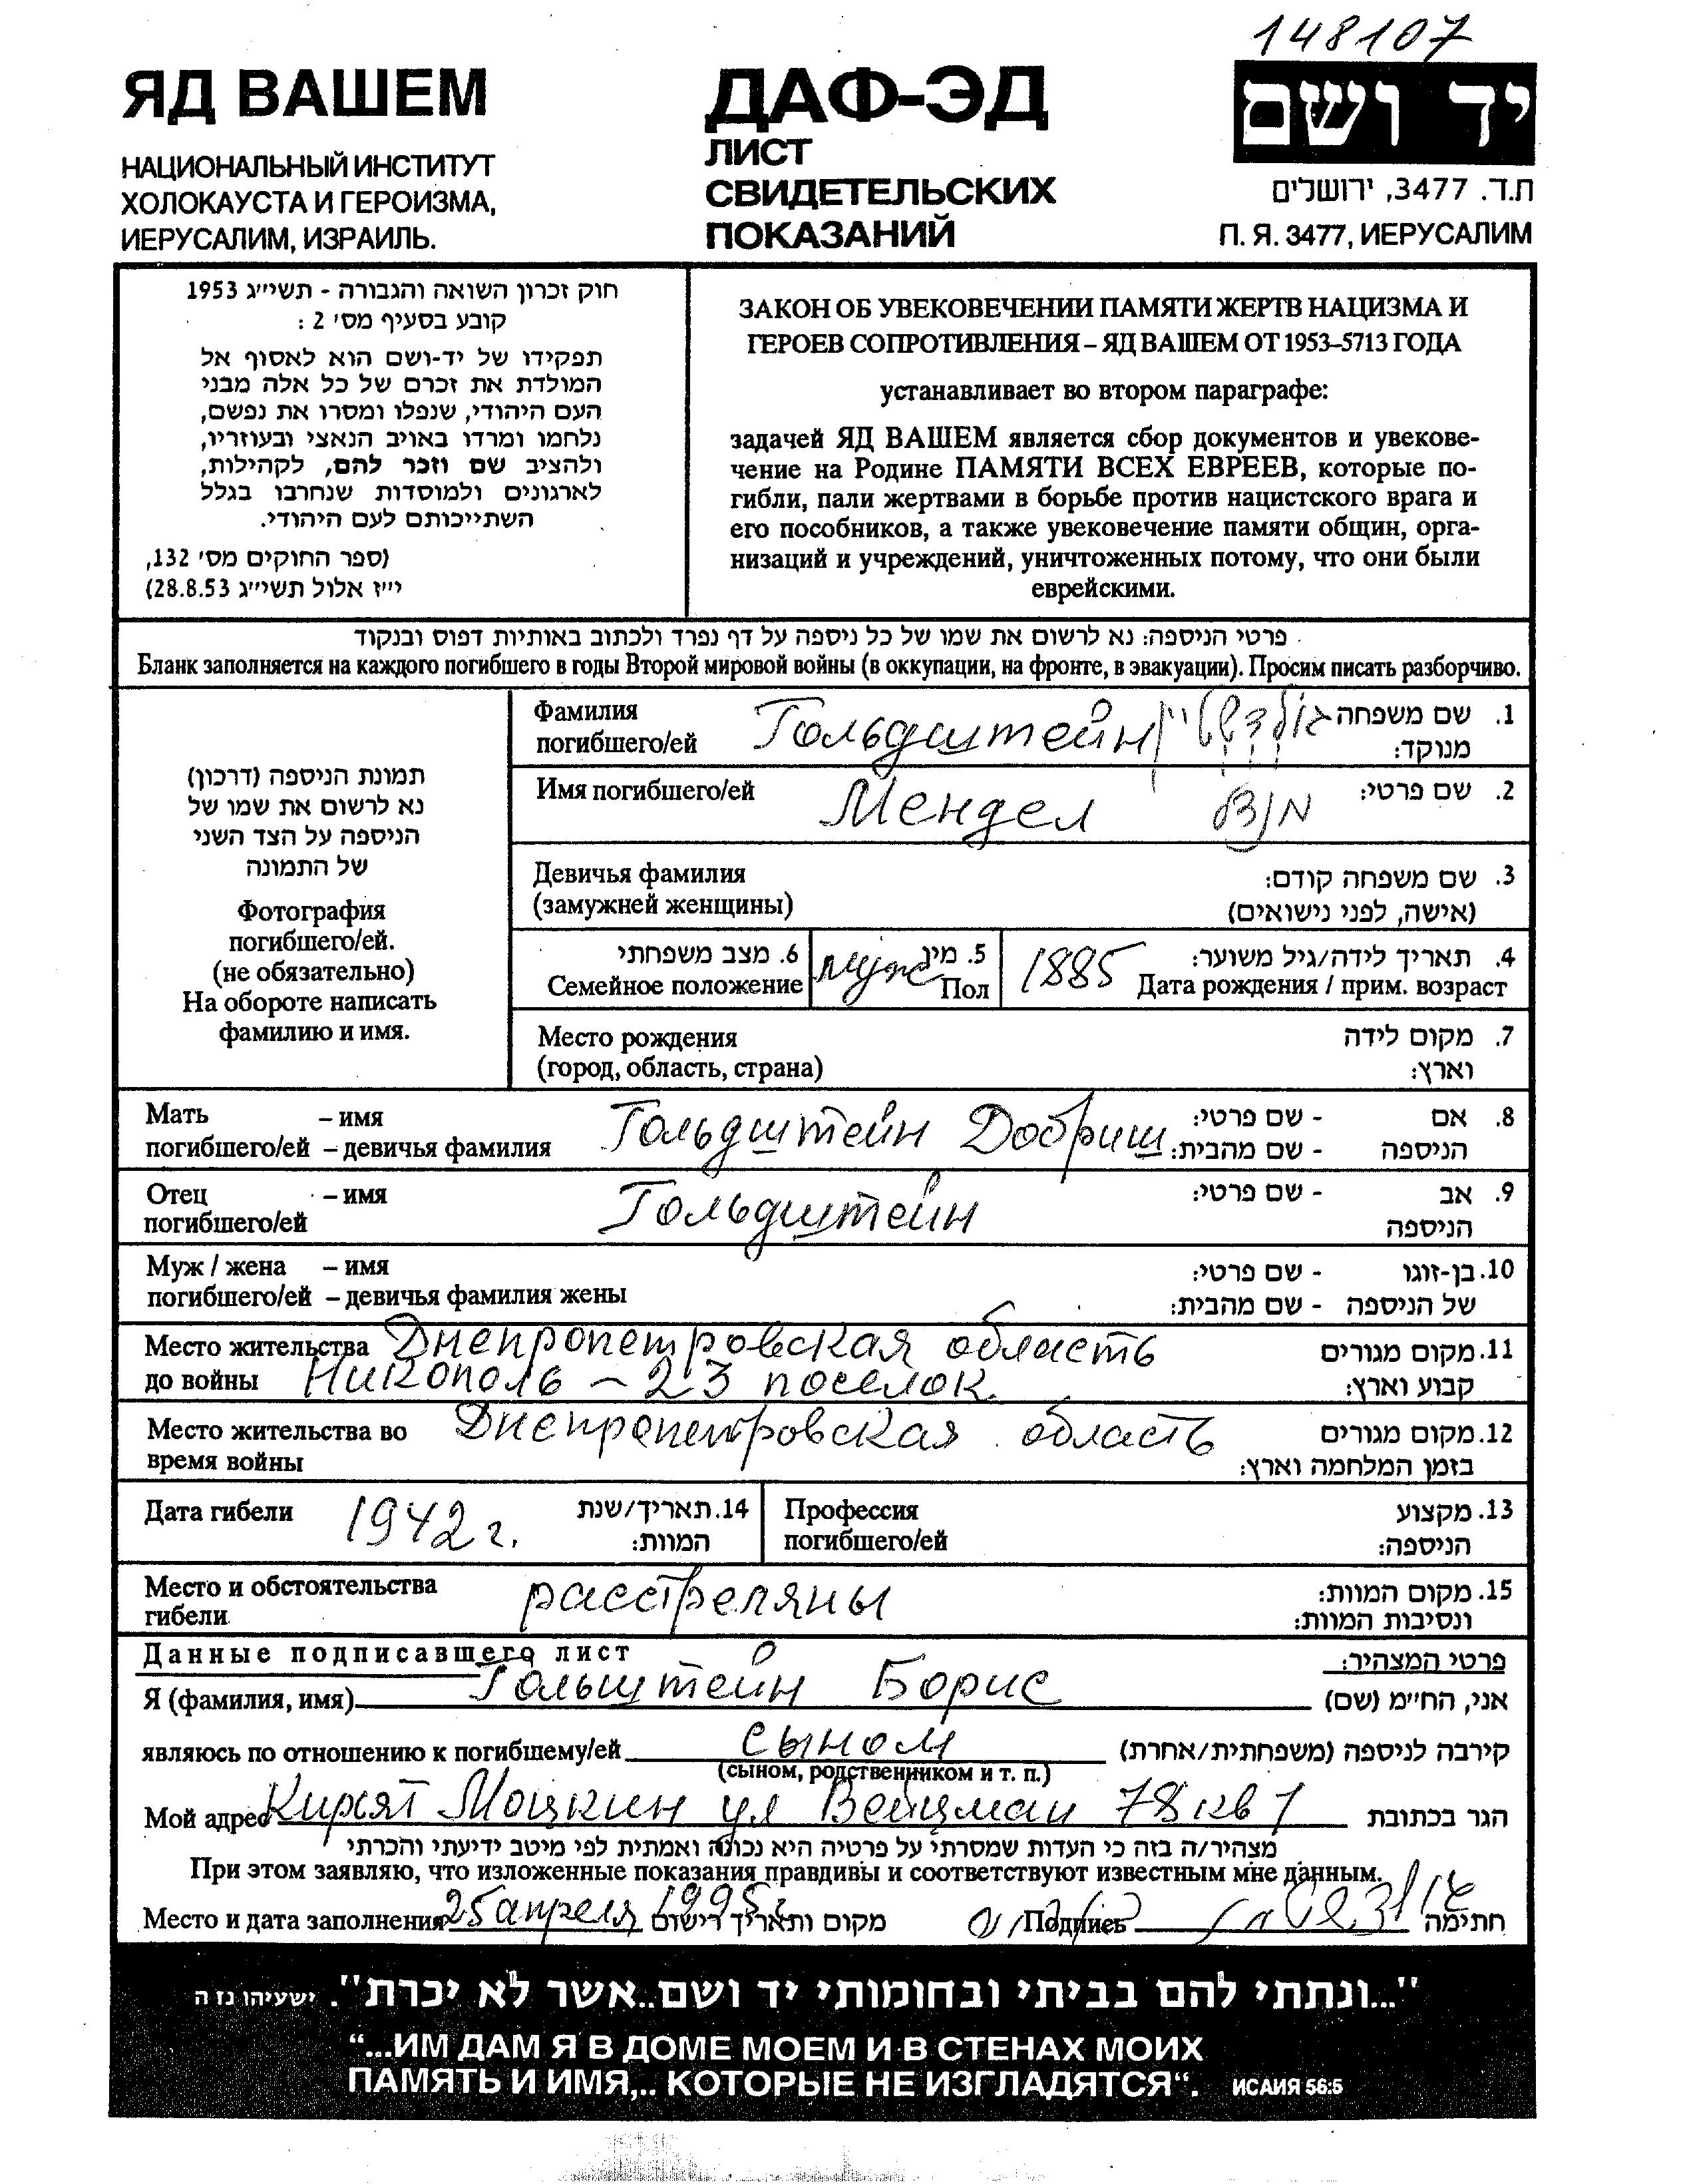 148107
ЯД ВАШЕМ
НАЦИОНАЛЬНЫЙ ИНСТИТУТ
ХОЛОКАУСТА И ГЕРОИЗМА,
ИЕРУСАЛИМ, ИЗРАИЛЬ.
ДАФ-ЭД
ЛИСТ
СВИДЕТЕЛЬСКИХ
ПОКАЗАНИЙ
יד ושם
ת.ד. 3477, ירושלים
П. Я. 3477, ИЕРУСАЛИМ
חוק זכרון השואה והגבורה - תשי״ג 1953
קובע בסעיף מס׳ 2 :
תפקידו של יד-ושם הוא לאסוף אל
המולדת את זכרם של כל אלה מבני
העם היהודי, שנפלו ומסרו את נפשם,
נלחמו ומרדו באויב הנאצי ובעוזריו,
ולהציב שם וזכר להם, לקהילות,
לארגונים ולמוסדות שנחרבו בגלל
השתייכותם לעם היהודי.
(ספר החוקים מס׳ 132,
י״ז אלול תשי״ג 28.8.53)
ЗАКОН ОБ УВЕКОВЕЧЕНИИ ПАМЯТИ ЖЕРТВ НАЦИЗМА И
ГЕРОЕВ СОПРОТИВЛЕНИЯ – ЯД ВАШЕМ ОТ 1953–5713 ГОДА
устанавливает во втором параграфе:
задачей ЯД ВАШЕМ является сбор документов и увекове-
чение на Родине ПАМЯТИ ВСЕХ ЕВРЕЕВ, которые по-
гибли, пали жертвами в борьбе против нацистского врага и
его пособников, а также увековечение памяти общин, орга-
низаций и учреждений, уничтоженных потому, что они были
еврейскими.
פרטי הניספה: נא לרשום את שמו של כל ניספה על דף נפרד ולכתוב באותיות דפוס ובנקוד
Бланк заполняется на каждого погибшего в годы Второй мировой войны (в оккупации, на фронте, в эвакуации). Просим писать разборчиво.
תמונת הניספה (דרכון)
נא לרשום את שמו של
הניספה על הצד השני
של התמונה
Фотография
погибшего/ей.
(не обязательно)
На обороте написать
фамилию и имя.
Фамилия Гольдштейн גולדשטיין שם משפחה .1
погибшего/ей מנוקד:
Имя погибшего/ей Мендел מנדל שם פרטי: .2
Девичья фамилия שם משפחה קודם: .3
(замужней женщины) (אישה, לפני נישואים)
6. מצב משפחתי
Семейное положение
муж 5. מין
Пол
1885 תאריך לידה/גיל משוער: .4
Дата рождения / прим. возраст
Место рождения מקום לידה .7
(город, область, страна) וארץ:
Мать – имя Гольдштейн Добриш - שם פרטי: אם .8
погибшего/ей – девичья фамилия - שם מהבית: הניספה
Отец – имя Гольдштейн - שם פרטי: אב .9
погибшего/ей הניספה
Муж / жена – имя - שם פרטי: בן-זוגו .10
погибшего/ей – девичья фамилия жены - שם מהבית: של הניספה
Место жительства Днепропетровская область מקום מגורים .11
до войны Никополь – 23 поселок. קבוע וארץ:
Место жительства во Днепропетровская область מקום מגורים .12
время войны בזמן המלחמה וארץ:
Дата гибели 1942 г. 14. תאריך/שנת
המוות:
Профессия מקצוע .13
погибшего/ей הניספה:
Место и обстоятельства расстреляны מקום המוות: .15
гибели ונסיבות המוות:
Данные подписавшего лист פרטי המצהיר:
Я (фамилия, имя) Гольштейн Борис אני, החי״מ (שם)
являюсь по отношению к погибшему/ей сыном קירבה לניספה (משפחתית/אחרת)
(сыном, родственником и т. п.)
Мой адрес Кирят Моцкин ул Вейцман 78 кв 1 הגר בכתובת
מצהיר/ה בזה כי העדות שמסרתי על פרטיה היא נכונה ואמתית לפי מיטב ידיעתי והכרתי
При этом заявляю, что изложенные показания правдивы и соответствуют известным мне данным.
Место и дата заполнения 25 апреля 1995 г מקום ותאריך רישום Подпись חתימה
"...ונתתי להם בביתי ובחומותי יד ושם..אשר לא יכרת". ישעיהו נז ה
“...ИМ ДАМ Я В ДОМЕ МОЕМ И В СТЕНАХ МОИХ
ПАМЯТЬ И ИМЯ,.. КОТОРЫЕ НЕ ИЗГЛАДЯТСЯ“. ИСАИЯ 56:5